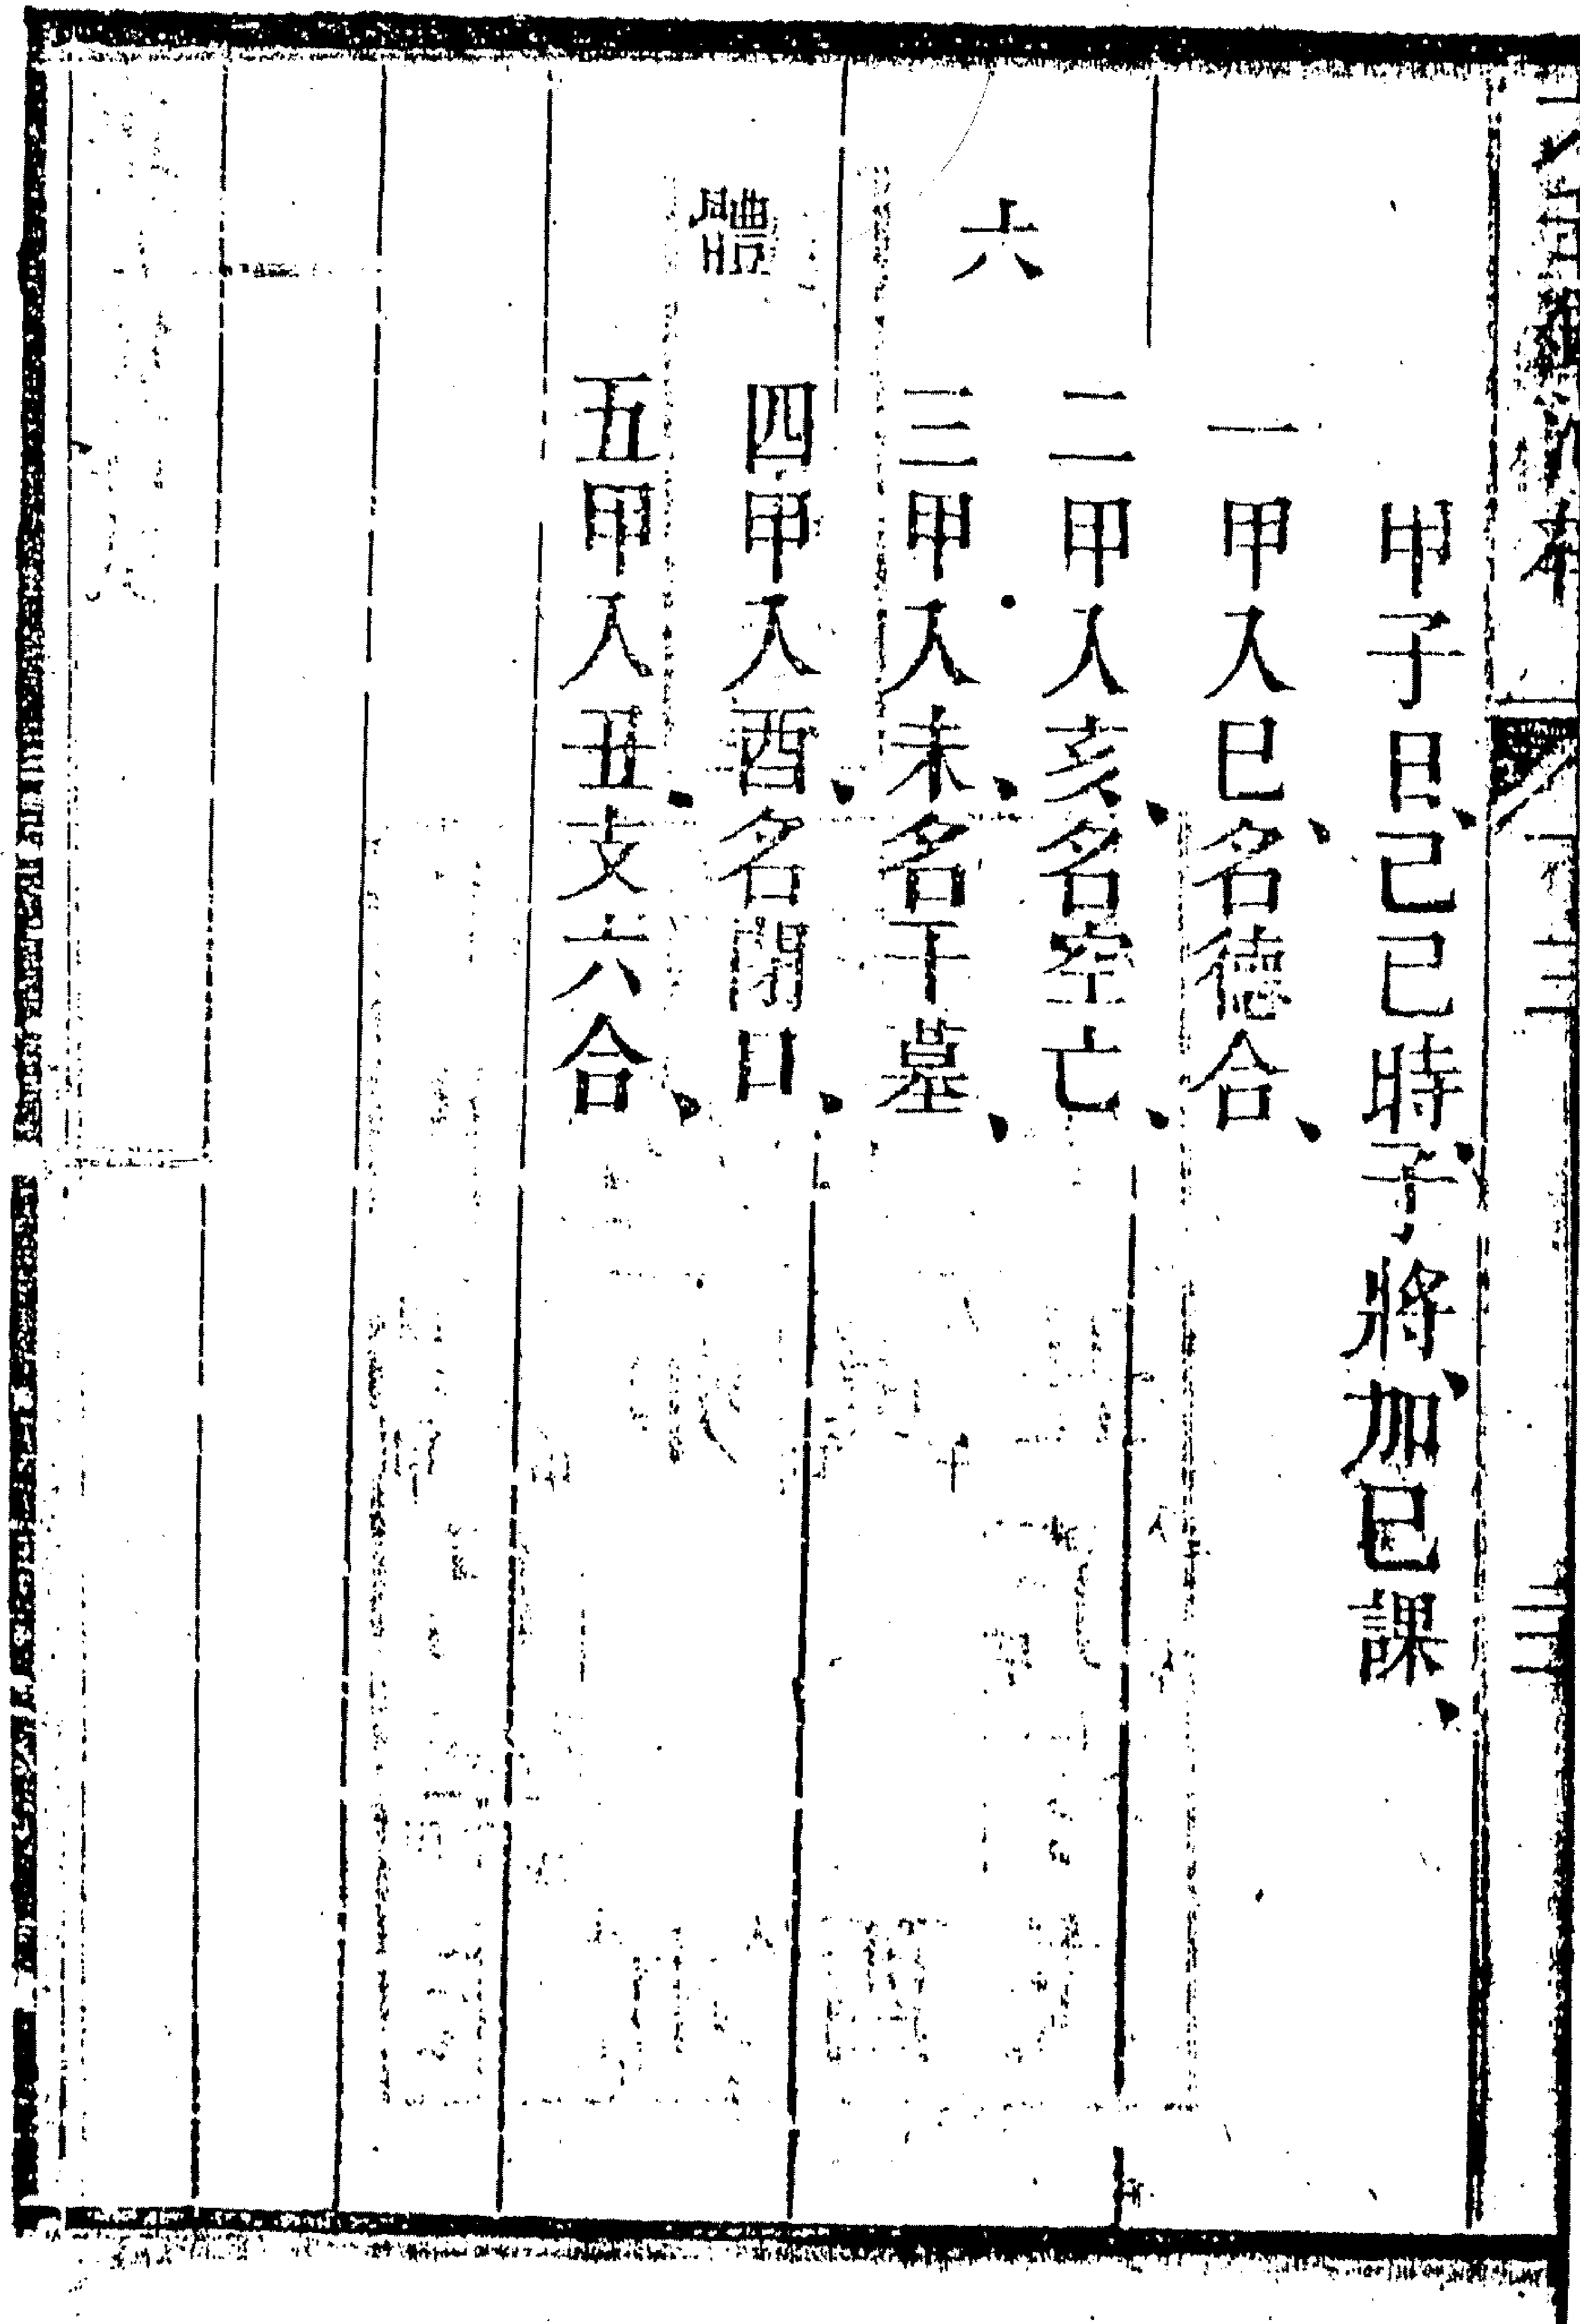 甲子日、己巳時、子將、加巳課、
一甲入巳、名德合、
二甲入亥、名空亡、
三甲入未、名干墓、
四甲入酉、名閉口、
五甲入丑、支六合、
六
體
三